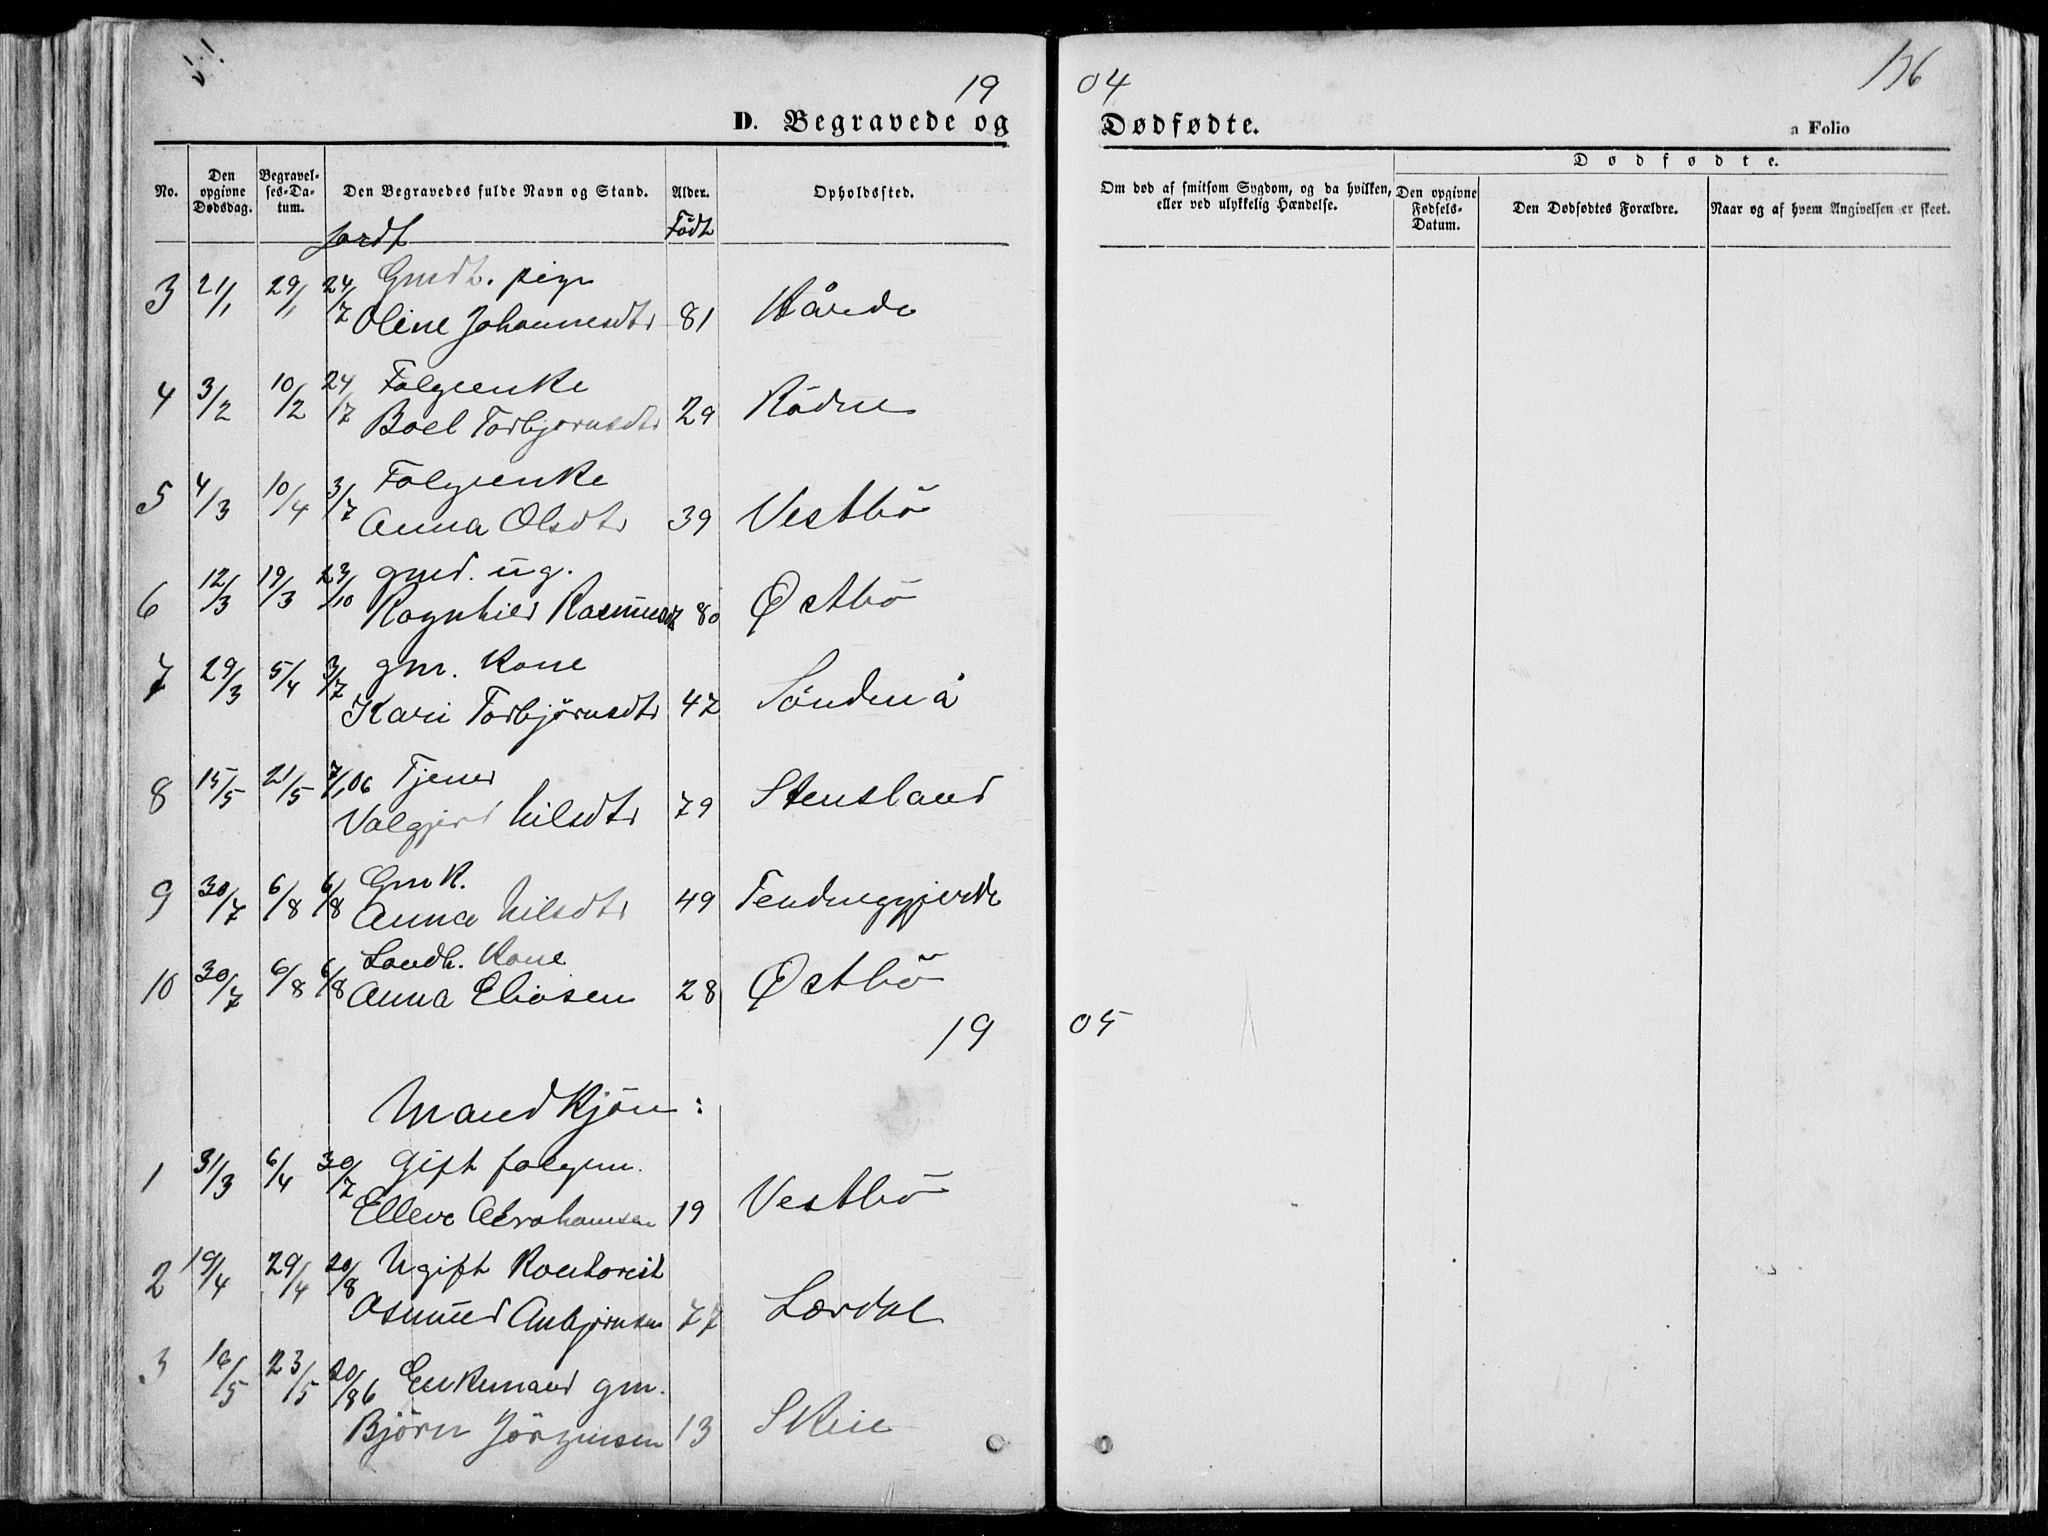 19 04 136
D. Begravede og Dødfødte. a Folio
Dødfødte.
No. Den opgivne Dødsdag. Begravelses-Datum. Den Begravedes fulde Navn og Stand. Alder. Opholdssted. Om død af smitsom Sygdom, og da hvilken, eller ved ulykkelig Hændelse. Den opgivne Fødsels-Datum. Den Dødfødtes Forældre. Naar og af hvem Angivelsen er skeet.
Jordf Födt
3 21/1 29/1 24/7 Gmdt. pige
Oline Johannesdtr 81
4 3/2 10/2 24/7 Folgeenke
Boel Torbjørnsdtr 29 Rödne
5 4/3 10/4 3/7 Folgeenke
Anna Olsdtr 39 Vestbö
6 12/3 19/3 23/10 gmd. ug.
Ragnhild Rasmusdt 80 Østbö
7 29/3 5/4 3/7 gm. Kone
Kari Torbjørnsdtr 42 Söndenå
8 15/5 21/5 7/1 06 Tjener
Valgjerd Nilsdtr 79 Stensland
9 30/7 6/8 6/8 Gmk.
Anna Nilsdtr 49
10 30/7 6/8 6/8 Landh. Kone
Anna Eliasen 28 Østbö
19 05
Mandkjön:
1 31/3 6/4 30/7 Gift folgem.
Elleve Abrahamsen 19 Vestbö
2 19/4 29/4 20/8 Ugift Kontorist
Osmund Anbjørnsen 77 Lærdal
3 16/5 23/5 20/8 6 Enkemand gm.
Björn Jörgensen 13 Skeie